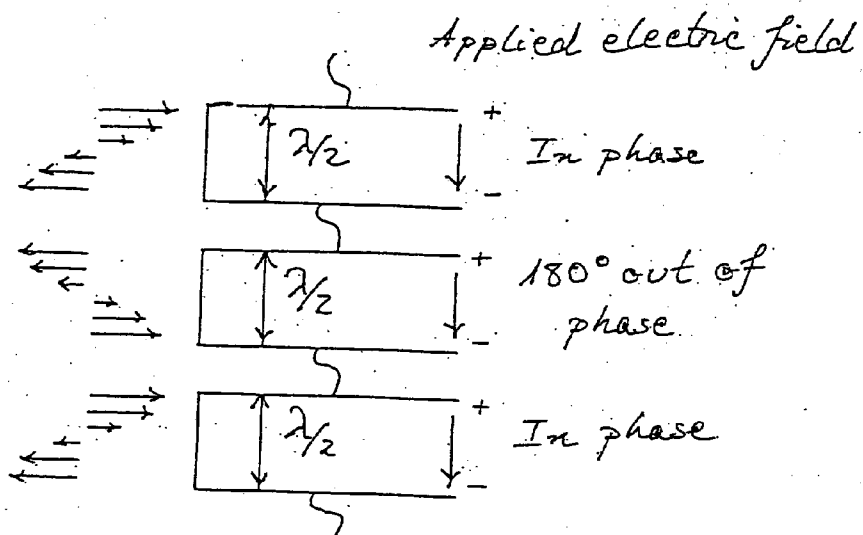 Applied electric field
λ/2
+
-
In phase
λ/2
+
-
180° out of
phase
λ/2
+
-
In phase